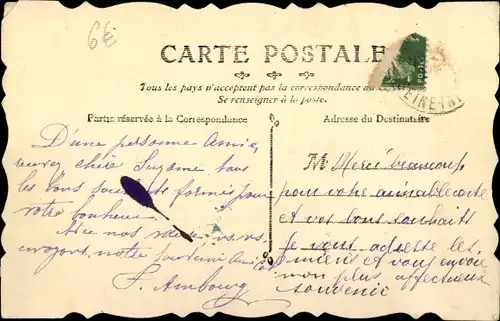 6 €
CARTE POSTALE
Tous les pays n'acceptent pas la correspondance au
Se renseigner à la poste.
Partie réservée à la Correspondance
Adresse du Destinataire
POSTES
D'une personne amie,
chère Suzanne tous
les bons souhaits formés pour
votre bonheur.
Avec nos
envoyons notre souvenir
F. Ambourg
M Merci beaucoup
pour votre aimable carte
et vos bons souhaits
Je vous adresse les
miens et vous envoie
mon plus affectueux
souvenir